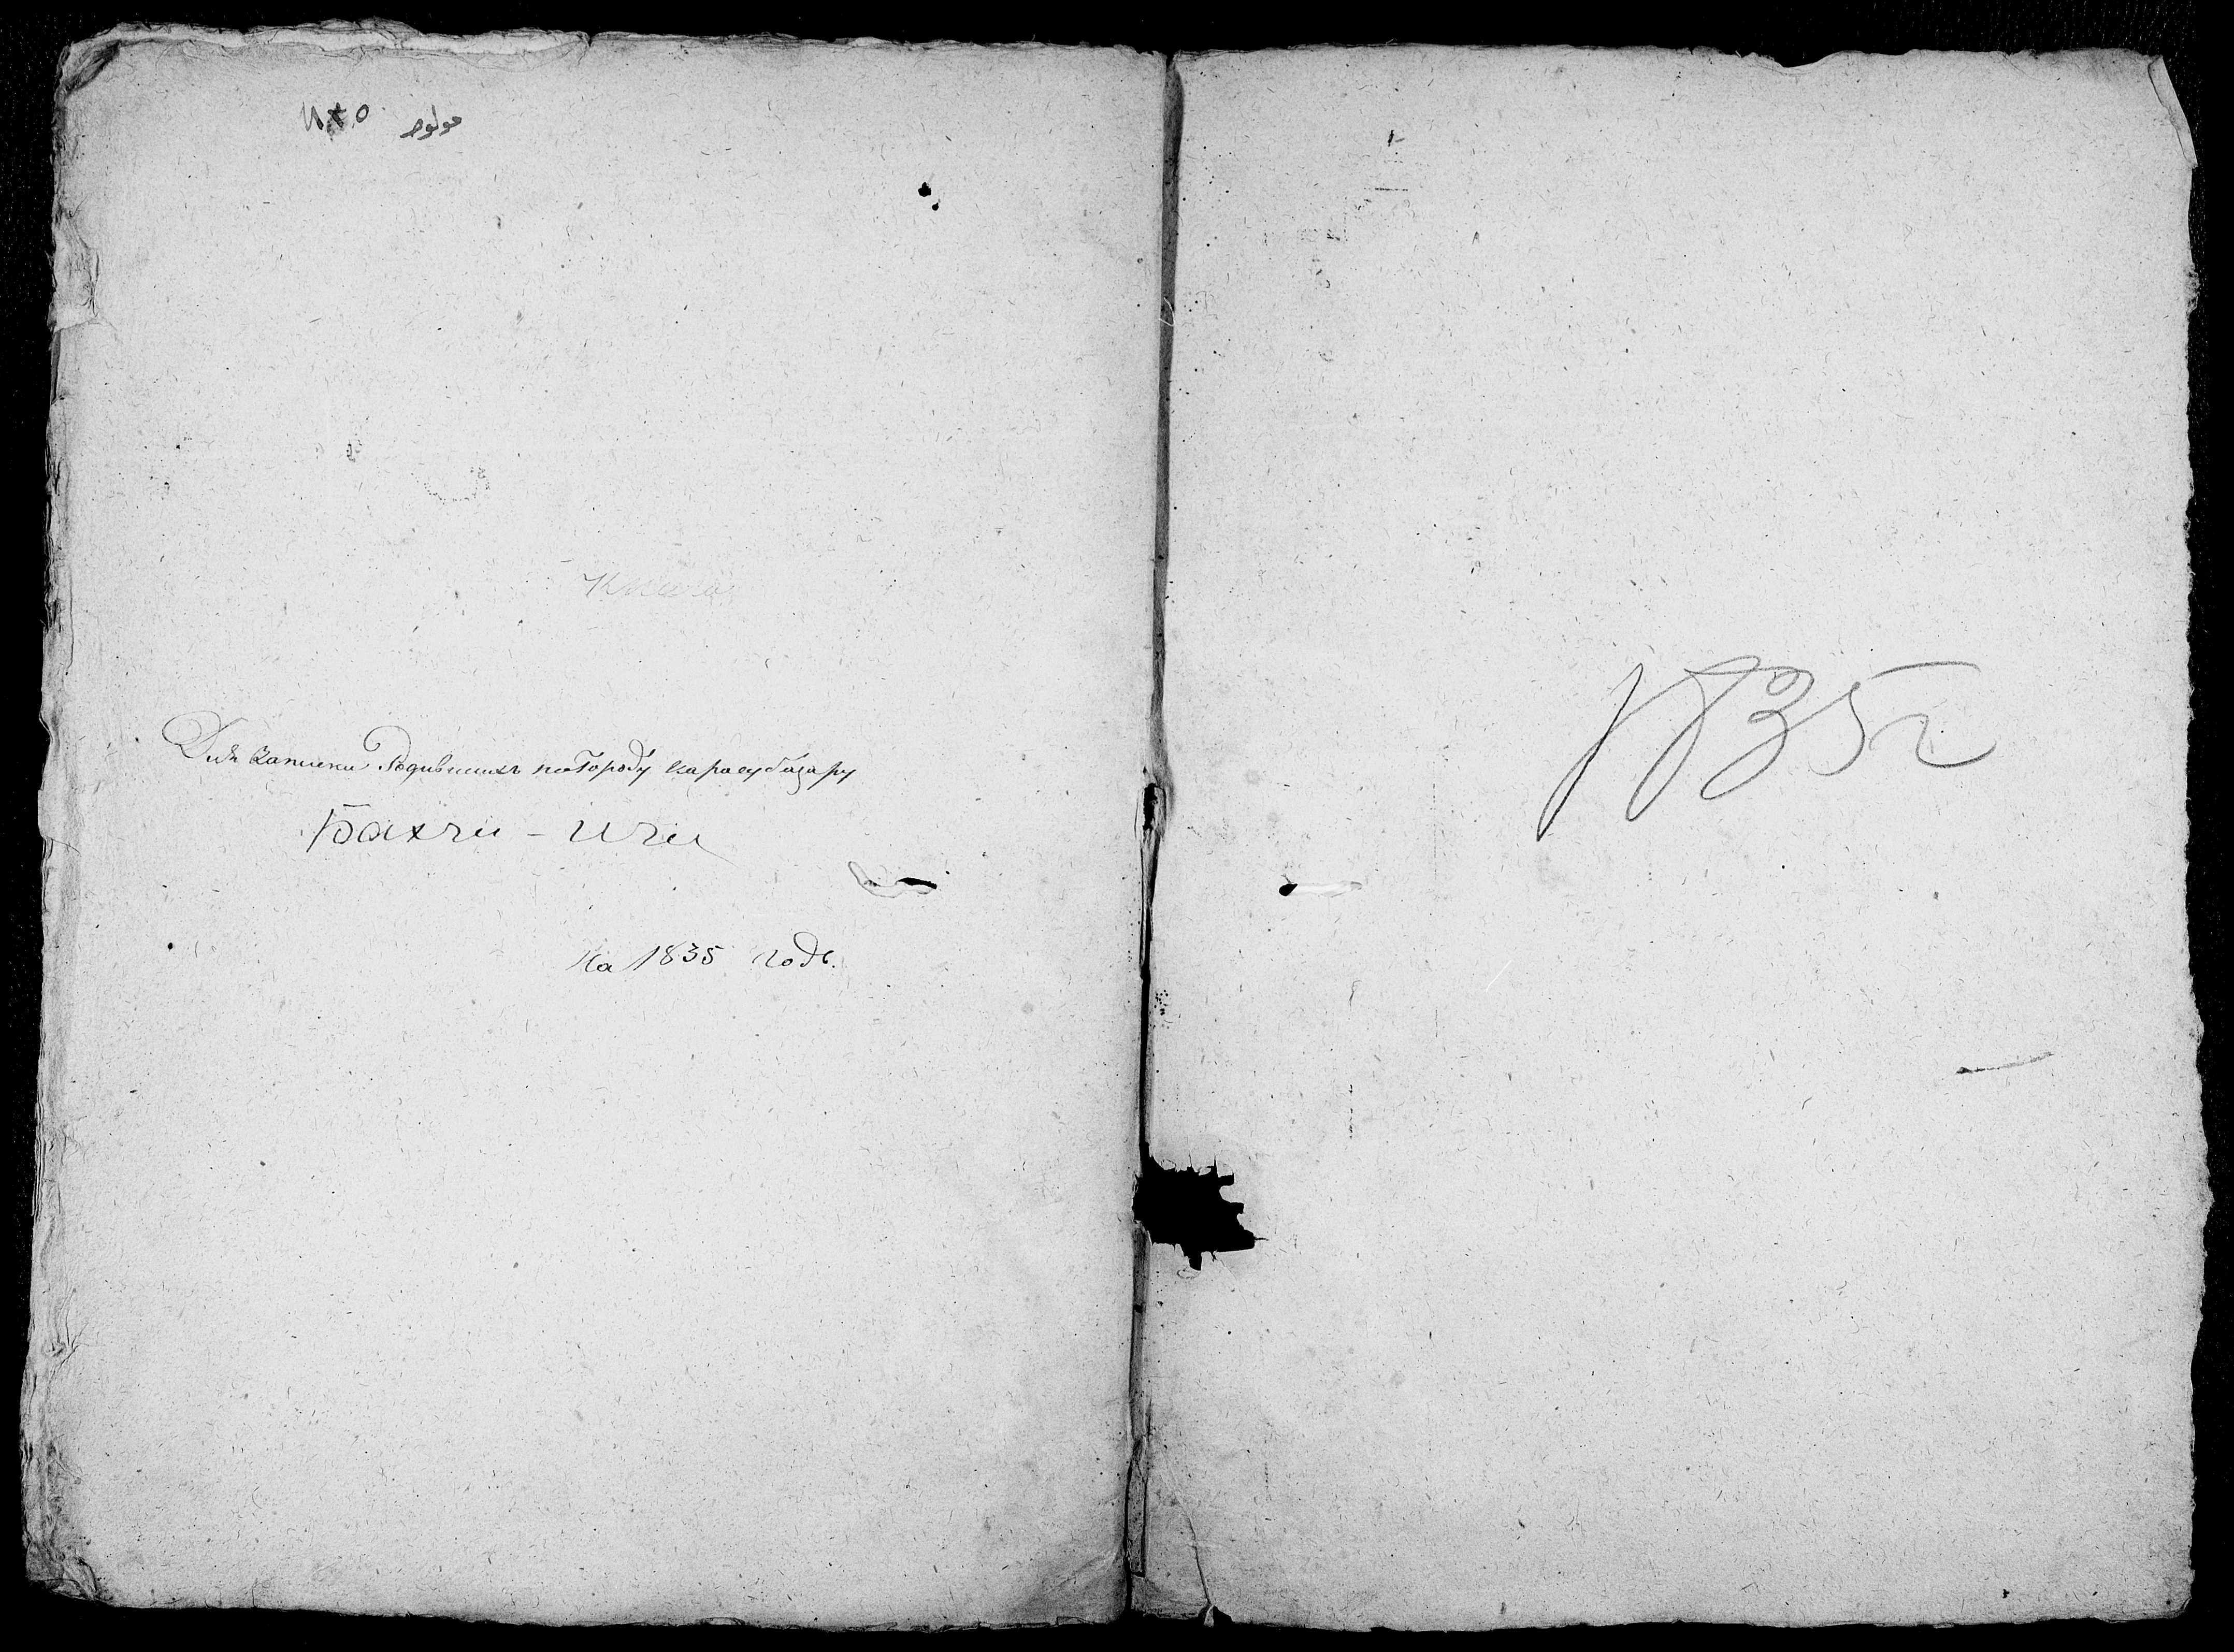 ١٨٣٥ مولود
Книга
Для записки Родившихъ по Городу карасубазару
Бахчи - Ичи
На 1835 годъ.
1835 г